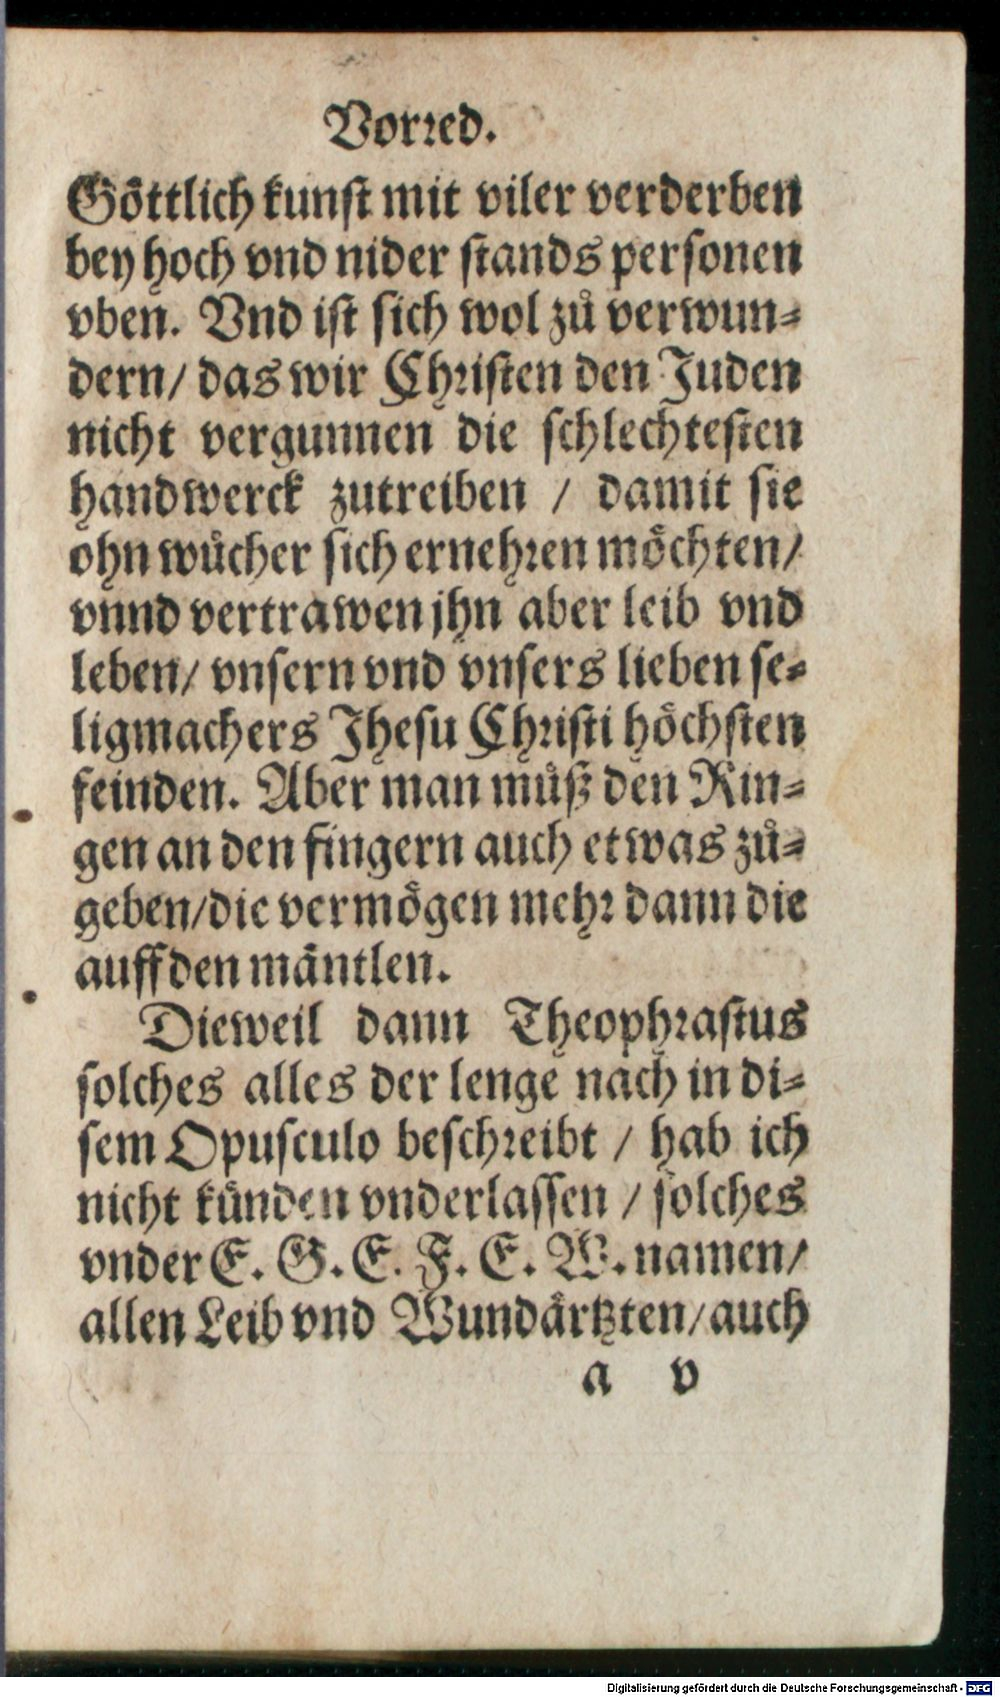 Vorred.
Göttlich kunst mit viler verderben
bey hoch vnd nider stands personen
vben. Vnd ist sich wol zů verwun-
dern/ das wir Christen den Juden
nicht vergunnen die schlechtesten
handwerck zutreiben / damit sie
ohn wůcher sich ernehren möchten/
vnnd vertrawen jhn aber leib vnd
leben/ vnsern vnd vnsers lieben se-
ligmachers Jhesu Christi höchsten
feinden. Aber man můß den Rin-
gen an den fingern auch etwas zů-
geben/die vermögen mehr dann die
auff den mäntlen.
Dieweil dann Theophrastus
solches alles der lenge nach in di-
sem Opusculo beschreibt / hab ich
nicht künden vnderlassen / solches
vnder E. G. E. F. E. W. namen/
allen Leib vnd Wundärtzten/auch
a v
Digitalisierung gefördert durch die Deutsche Forschungsgemeinschaft - DFG